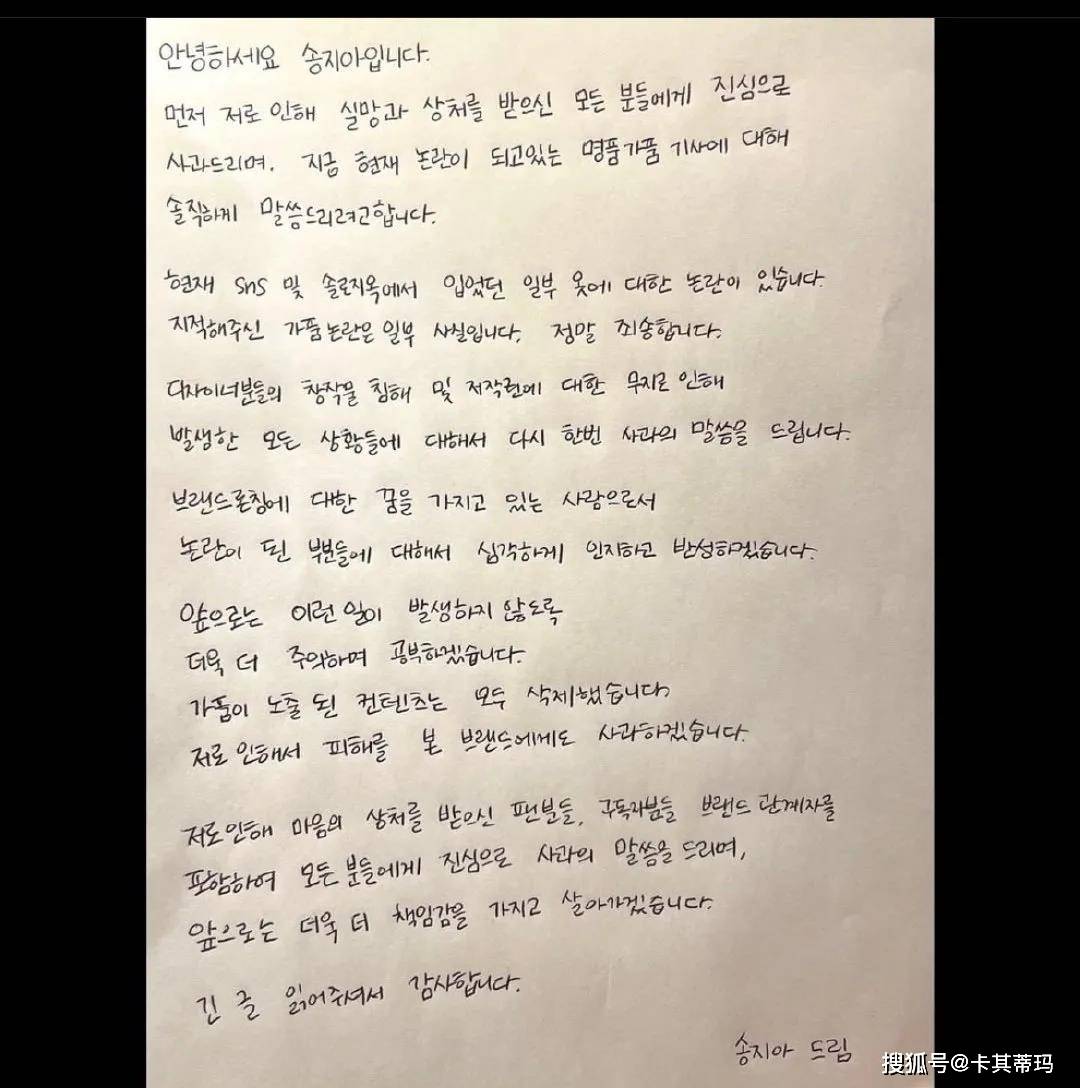 안녕하세요 송지아입니다.
먼저 저로 인해 실망과 상처를 받으신 모든 분들에게 진심으로
사과드리며, 지금 현재 논란이 되고있는 명품가품 기사에 대해
솔직하게 말씀드리려고합니다.
현재 sns 및 솔로지옥에서 입었던 일부 옷에 대한 논란이 있습니다.
지적해주신 가품논란은 일부 사실입니다. 정말 죄송합니다.
디자이너분들의 창작물 침해 및 저작권에 대한 무지로 인해
발생한 모든 상황들에 대해서 다시 한번 사과의 말씀을 드립니다.
브랜드론칭에 대한 꿈을 가지고 있는 사람으로서
논란이 된 부분들에 대해서 심각하게 인지하고 반성하겠습니다.
앞으로는 이런 일이 발생하지 않도록
더욱 더 주의하며 공부하겠습니다.
가품이 노출 된 컨텐츠는 모두 삭제했습니다.
저로 인해서 피해를 본 브랜드에게도 사과하겠습니다.
저로인해 마음의 상처를 받으신 팬분들, 구독자분들 브랜드 관계자를
포함하여 모든 분들에게 진심으로 사과의 말씀을 드리며,
앞으로는 더욱 더 책임감을 가지고 살아가겠습니다.
긴 글 읽어주셔서 감사합니다.
송지아 드림
搜狐号@卡其蒂玛